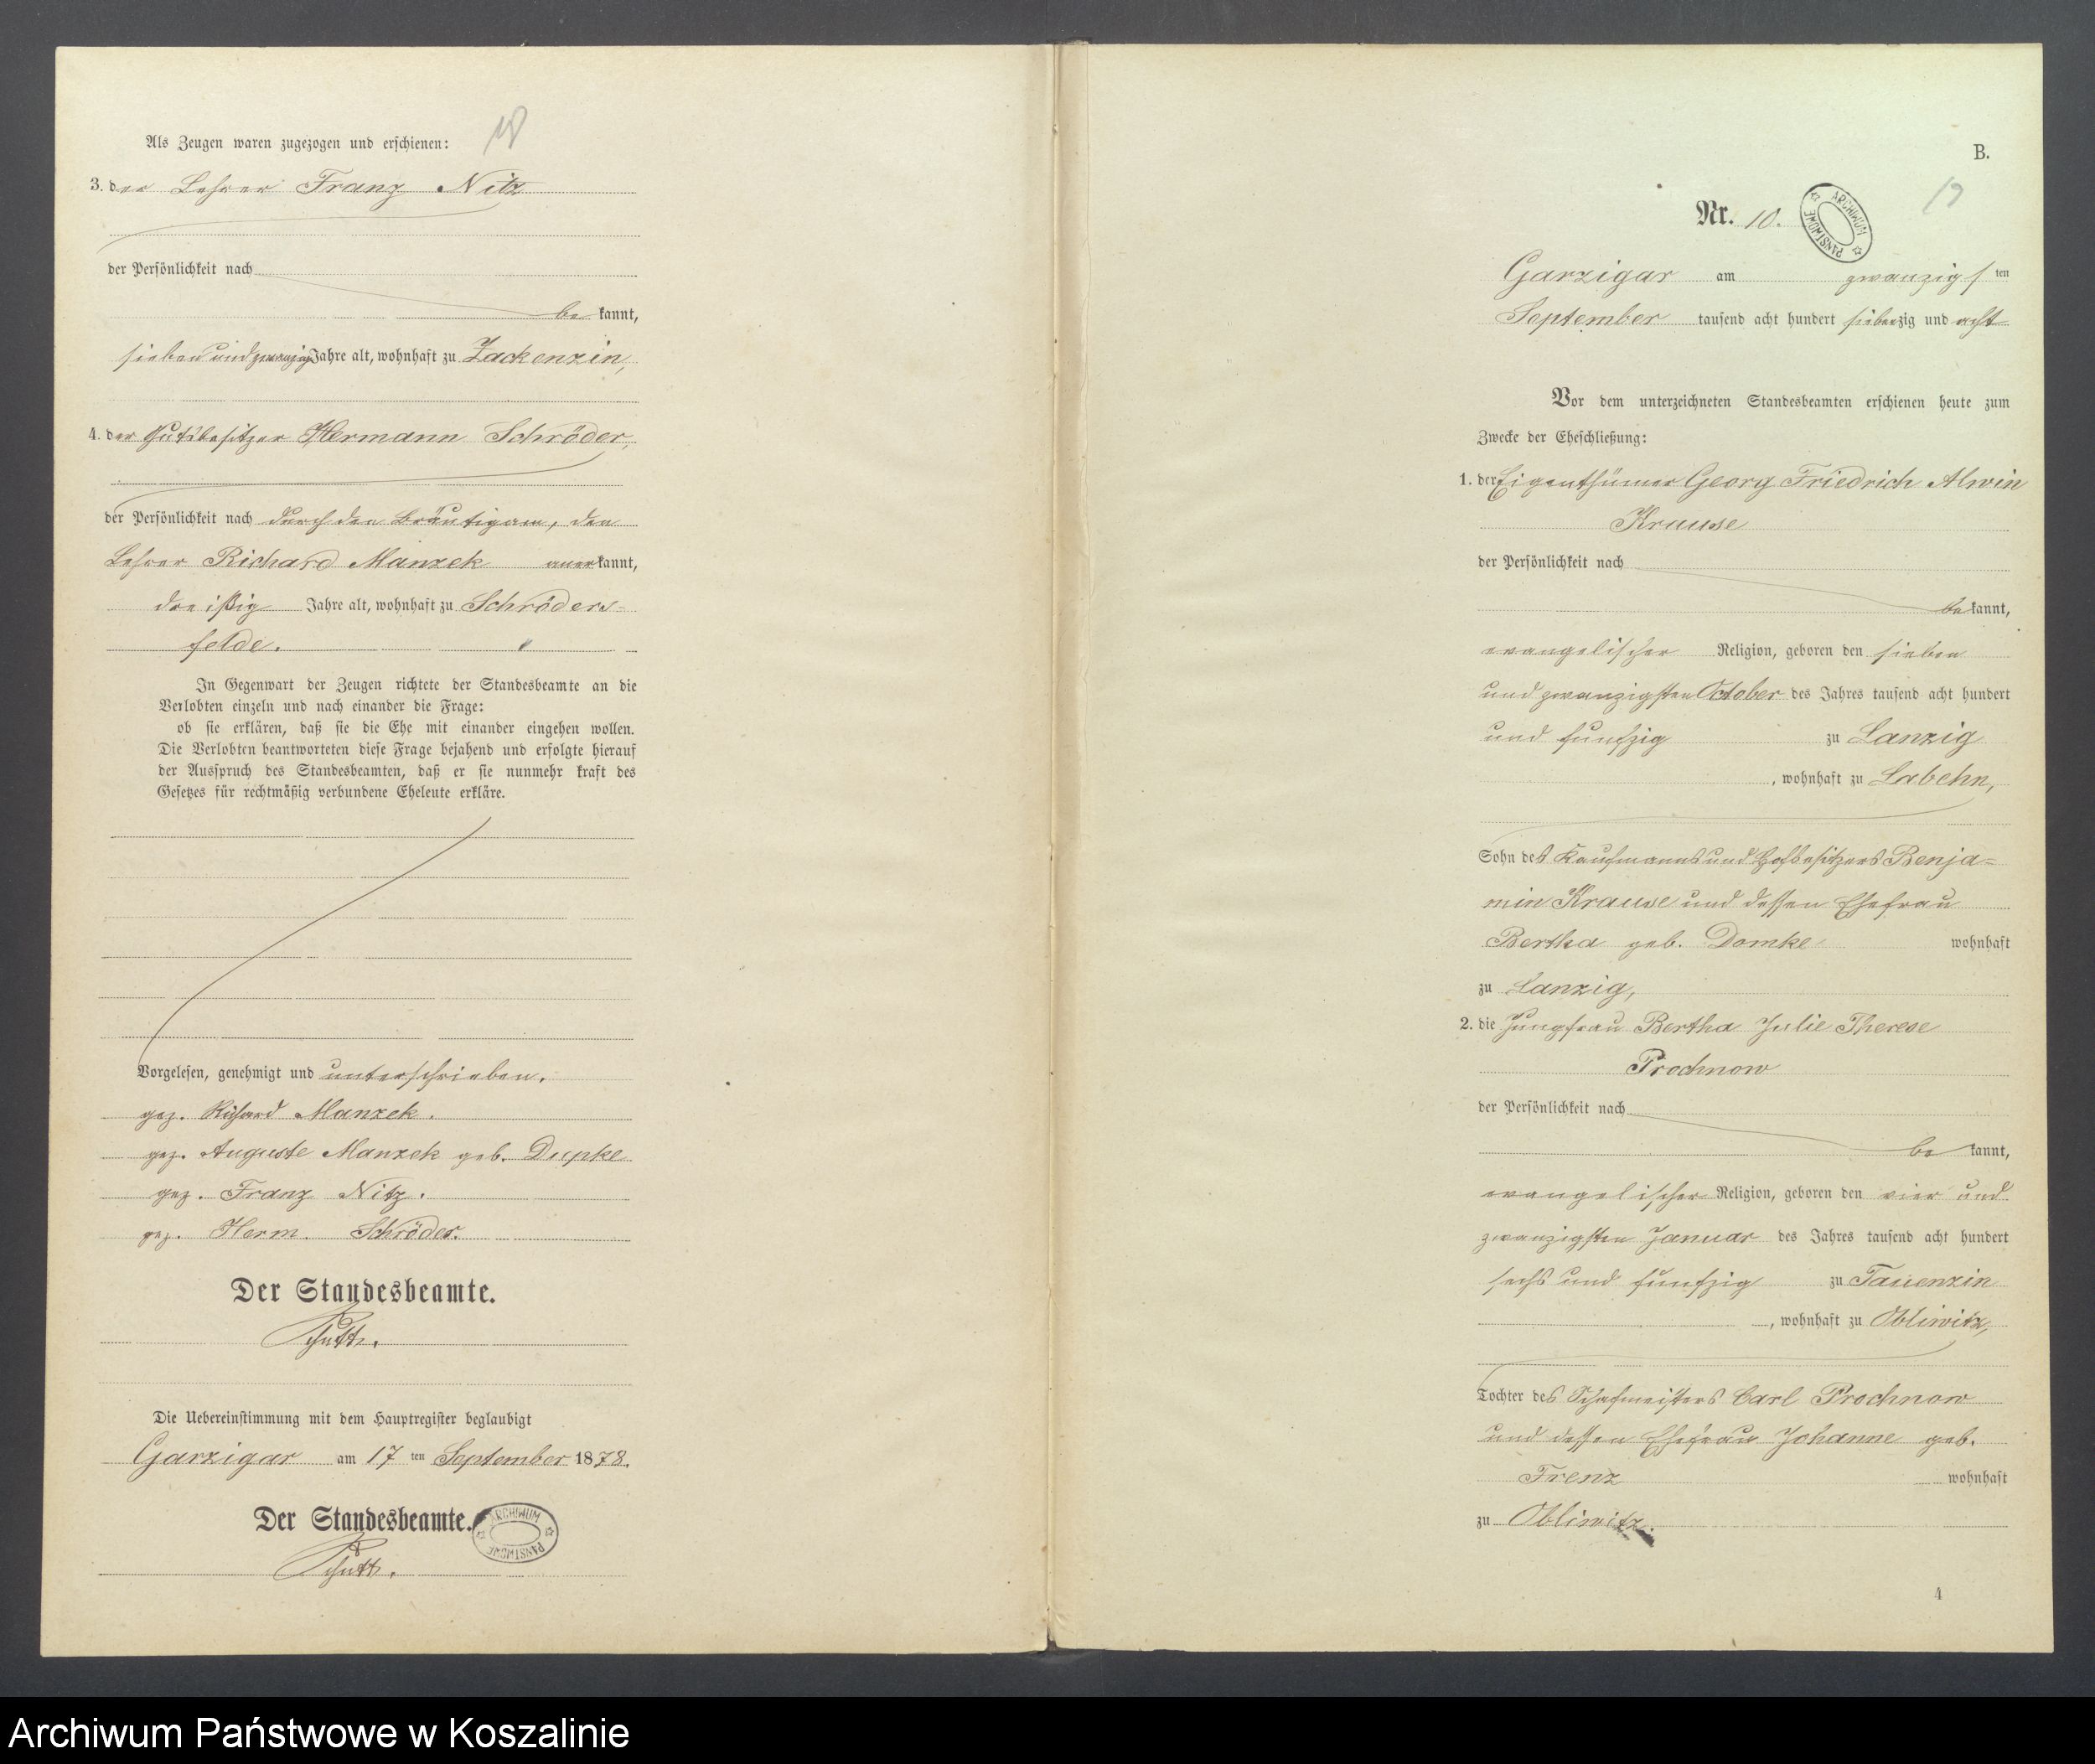 18
Als Zeugen waren zugezogen und erschienen:
3. der Lehrer Franz Nitz
der Persönlichkeit nach
be kannt,
sieben und zwanzig Jahre alt, wohnhaft zu Zackenzin,
4. der Gutsbesitzer Hermann Schröder,
der Persönlichkeit nach durch den Bräutigam, den
Lehrer Richard Manzek anerkannt,
dreißig Jahre alt, wohnhaft zu Schröders-
felde.
In Gegenwart der Zeugen richtete der Standesbeamte an die
Verlobten einzeln und nach einander die Frage:
ob sie erklären, daß sie die Ehe mit einander eingehen wollen.
Die Verlobten beantworteten diese Frage bejahend und erfolgte hierauf
der Ausspruch des Standesbeamten, daß er sie nunmehr kraft des
Gesetzes für rechtmäßig verbundene Eheleute erkläre.
Vorgelesen, genehmigt und unterschrieben.
gez. Richard Manzek.
gez. Auguste Manzek geb. Dupke
gez. Franz Nitz.
gez. Herm. Schröder.
Der Standesbeamte.
Die Uebereinstimmung mit dem Hauptregister beglaubigt
Garzigar am 17 ten September 1878.
Der Standesbeamte.
ARCHIWUM PAŃSTWOWE
B.
19
Nr. 10.
ARCHIWUM PAŃSTWOWE
Garzigar am zwanzigsten
September tausend acht hundert siebenzig und acht
Vor dem unterzeichneten Standesbeamten erschienen heute zum
Zwecke der Eheschließung:
1. der Eigenthümer Georg Friedrich Alwin
Krause
der Persönlichkeit nach
be kannt,
evangelischer Religion, geboren den sieben
und zwanzigsten October des Jahres tausend acht hundert
und funfzig zu Lanzig
, wohnhaft zu Labehn,
Sohn des Kaufmanns und Hofbesitzers Benja-
min Krause und dessen Ehefrau
Bertha geb. Domke wohnhaft
zu Lanzig,
2. die Jungfrau Bertha Julie Therese
Prochnow
der Persönlichkeit nach
be kannt,
evangelischer Religion, geboren den vier und
zwanzigsten Januar des Jahres tausend acht hundert
sechs und funfzig zu Tauenzin
, wohnhaft zu Obliwitz,
Tochter des Schafmeisters Carl Prochnow
und dessen Ehefrau Johanne geb.
Frenz wohnhaft
zu Obliwitz.
4
Archiwum Państwowe w Koszalinie